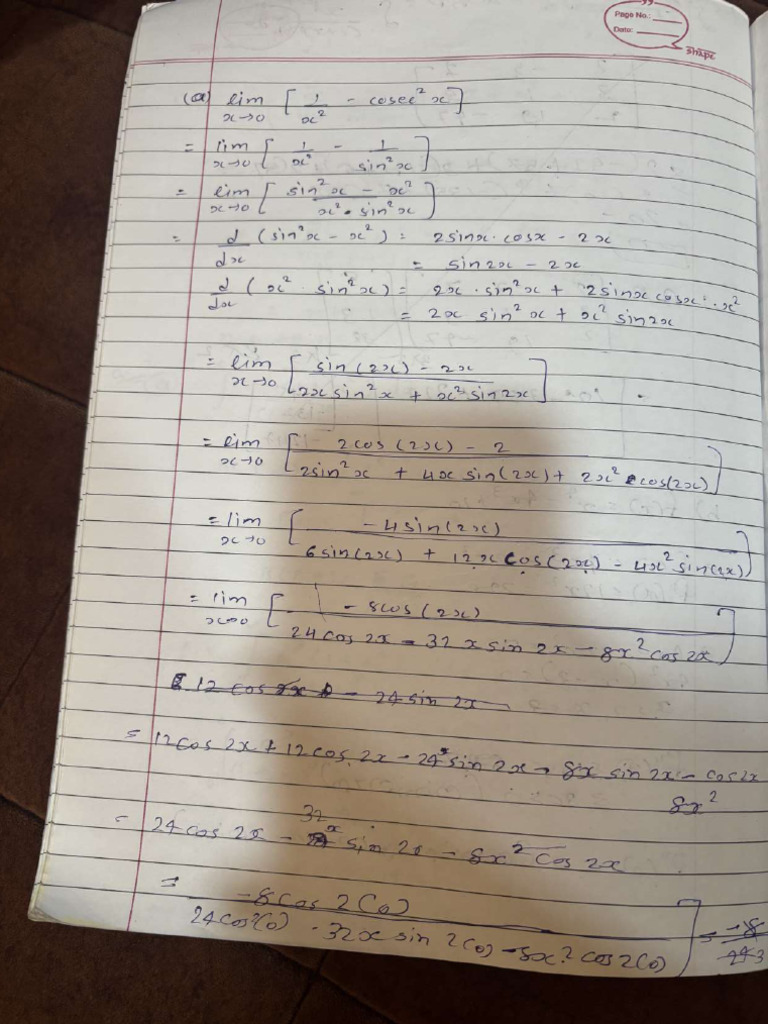 Page No.:
Date:
Shape
(a) lim x→0 [1/x² - cosec²x]
= lim x→0 [1/x² - 1/sin²x]
= lim x→0 [sin²x - x² / x² • sin²x]
= d/dx (sin²x - x²) = 2sinx·cosx - 2x
= sin2x - 2x
d/dx (x² · sin²x) = 2x · sin²x + 2sinx cosx · x²
= 2x sin²x + x² sin2x
= lim x→0 [sin(2x) - 2x / 2x sin²x + x² sin2x]
= lim x→0 [2cos(2x) - 2 / 2sin²x + 4x sin(2x) + 2x² cos(2x)]
= lim x→0 [-4sin(2x) / 6sin(2x) + 12x cos(2x) - 4x² sin(2x)]
= lim x→0 [-8cos(2x) / 24cos2x - 32 x sin 2x - 8x² cos2x]
12 cos 2x - 24 sin 2x
= 12cos 2x + 12cos 2x - 24x sin 2x - 8x sin 2x - cos2x 8x²
= 24cos 2x - 32x sin 2x - 8x² cos 2x
= -8cos 2(0) / 24cos2(0) - 32x sin 2(0) - 8x² cos2(0)] = -8/24 3